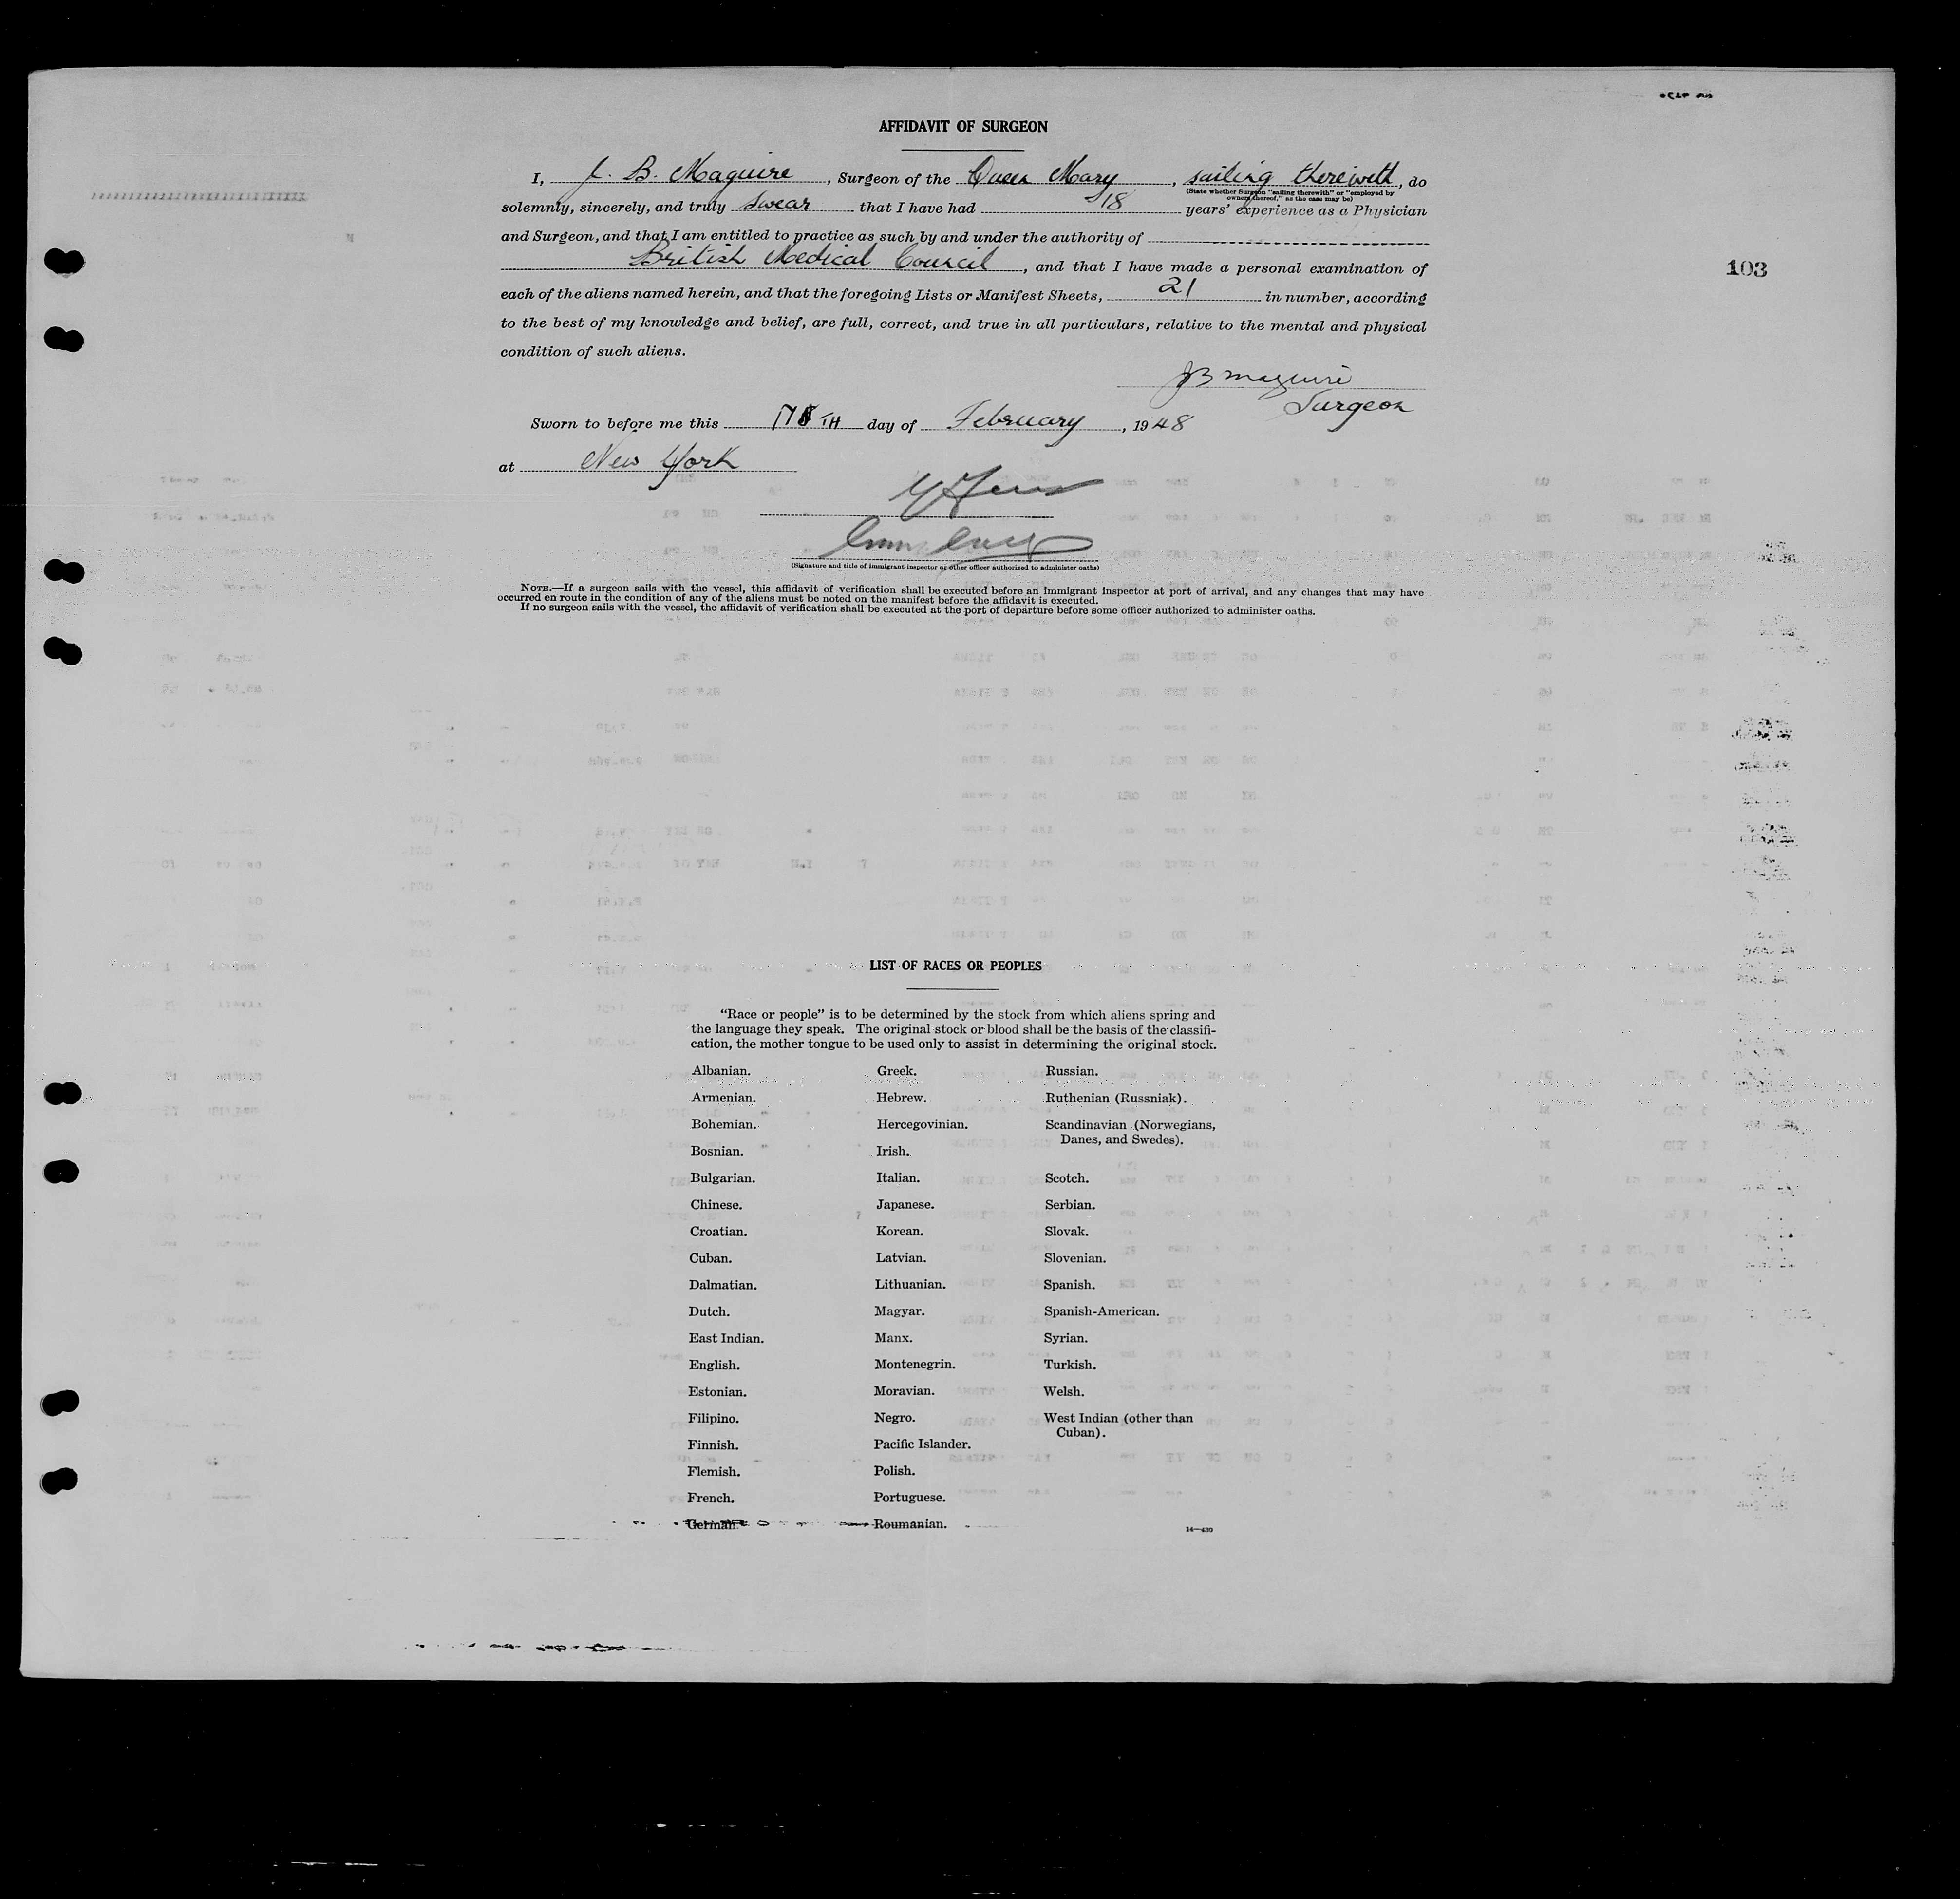 AFFIDAVIT OF SURGEON
I, J. B. Maguire, Surgeon of the Queen Mary, sailing therewith, do
(State whether Surgeon "sailing therewith" or "employed by
owners thereof," as the case may be)
solemnly, sincerely, and truly swear that I have had 18 years' experience as a Physician
and Surgeon, and that I am entitled to practice as such by and under the authority of
British Medical Council, and that I have made a personal examination of
103
each of the aliens named herein, and that the foregoing Lists or Manifest Sheets, 21 in number, according
to the best of my knowledge and belief, are full, correct, and true in all particulars, relative to the mental and physical
condition of such aliens.
JB Maguire
Surgeon
Sworn to before me this TH day of February, 1948
at New York
(Signature and title of immigrant inspector or other officer authorized to administer oaths)
NOTE.—If a surgeon sails with the vessel, this affidavit of verification shall be executed before an immigrant inspector at port of arrival, and any changes that may have
occurred en route in the condition of any of the aliens must be noted on the manifest before the affidavit is executed.
If no surgeon sails with the vessel, the affidavit of verification shall be executed at the port of departure before some officer authorized to administer oaths.
LIST OF RACES OR PEOPLES
"Race or people" is to be determined by the stock from which aliens spring and
the language they speak. The original stock or blood shall be the basis of the classifi-
cation, the mother tongue to be used only to assist in determining the original stock.
Albanian.
Armenian.
Bohemian.
Bosnian.
Bulgarian.
Chinese.
Croatian.
Cuban.
Dalmatian.
Dutch.
East Indian.
English.
Estonian.
Filipino.
Finnish.
Flemish.
French.
German.
Greek.
Hebrew.
Hercegovinian.
Irish.
Italian.
Japanese.
Korean.
Latvian.
Lithuanian.
Magyar.
Manx.
Montenegrin.
Moravian.
Negro.
Pacific Islander.
Polish.
Portuguese.
Roumanian.
Russian.
Ruthenian (Russniak).
Scandinavian (Norwegians,
Danes, and Swedes).
Scotch.
Serbian.
Slovak.
Slovenian.
Spanish.
Spanish-American.
Syrian.
Turkish.
Welsh.
West Indian (other than
Cuban).
14—430